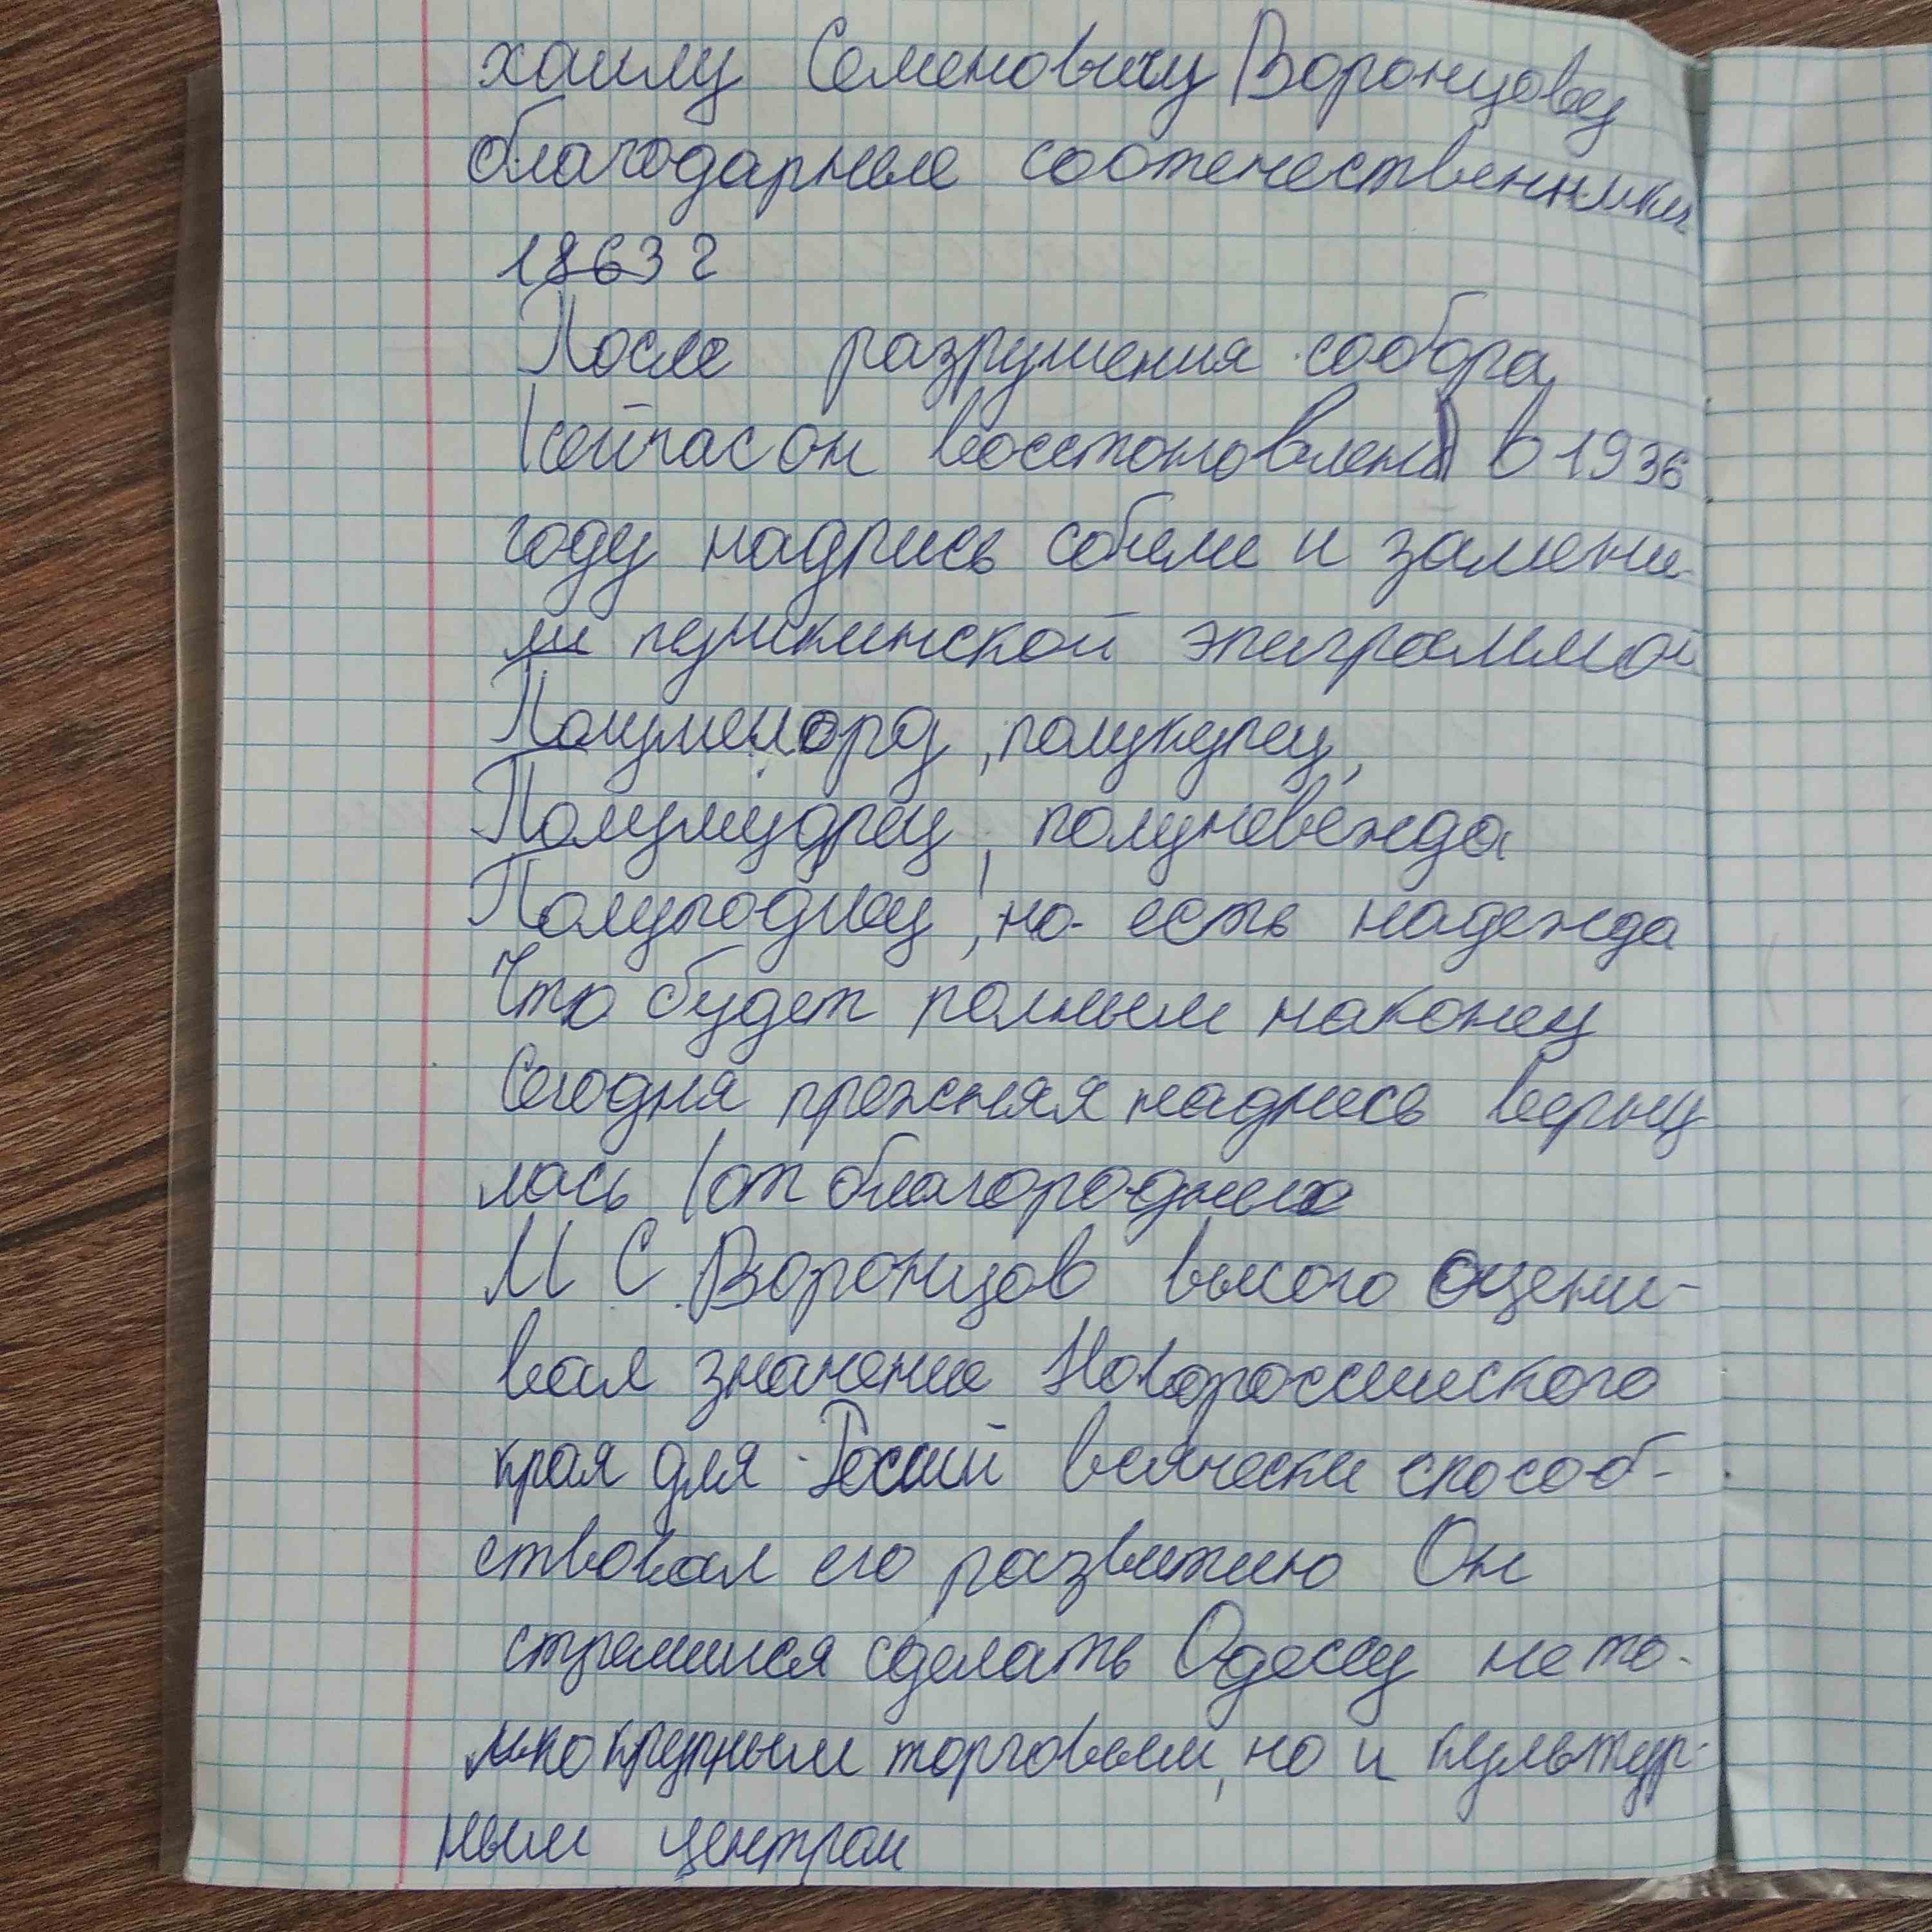 хаилу Семеновичу Воронцову
благодарные соотечественники
1863 г
После разрушения собора
(сейчас он восстановлен) в 1936
году надпись сбили и замени-
ли пушкинской эпиграммой
Полумилорд, полукупец,
Полумудрец, полуневежда
Полуподлец, но есть надежда
Что будет полным наконец
Сегодня прежняя надпись верну
лась (от благородных
М С Воронцов высого оцени-
вая значение Новороссийского
края для Росий всячески способ-
ствовал его развитию Он
стремился сделать Одессу не то-
лько крупным торговым, но и культур-
ным центром